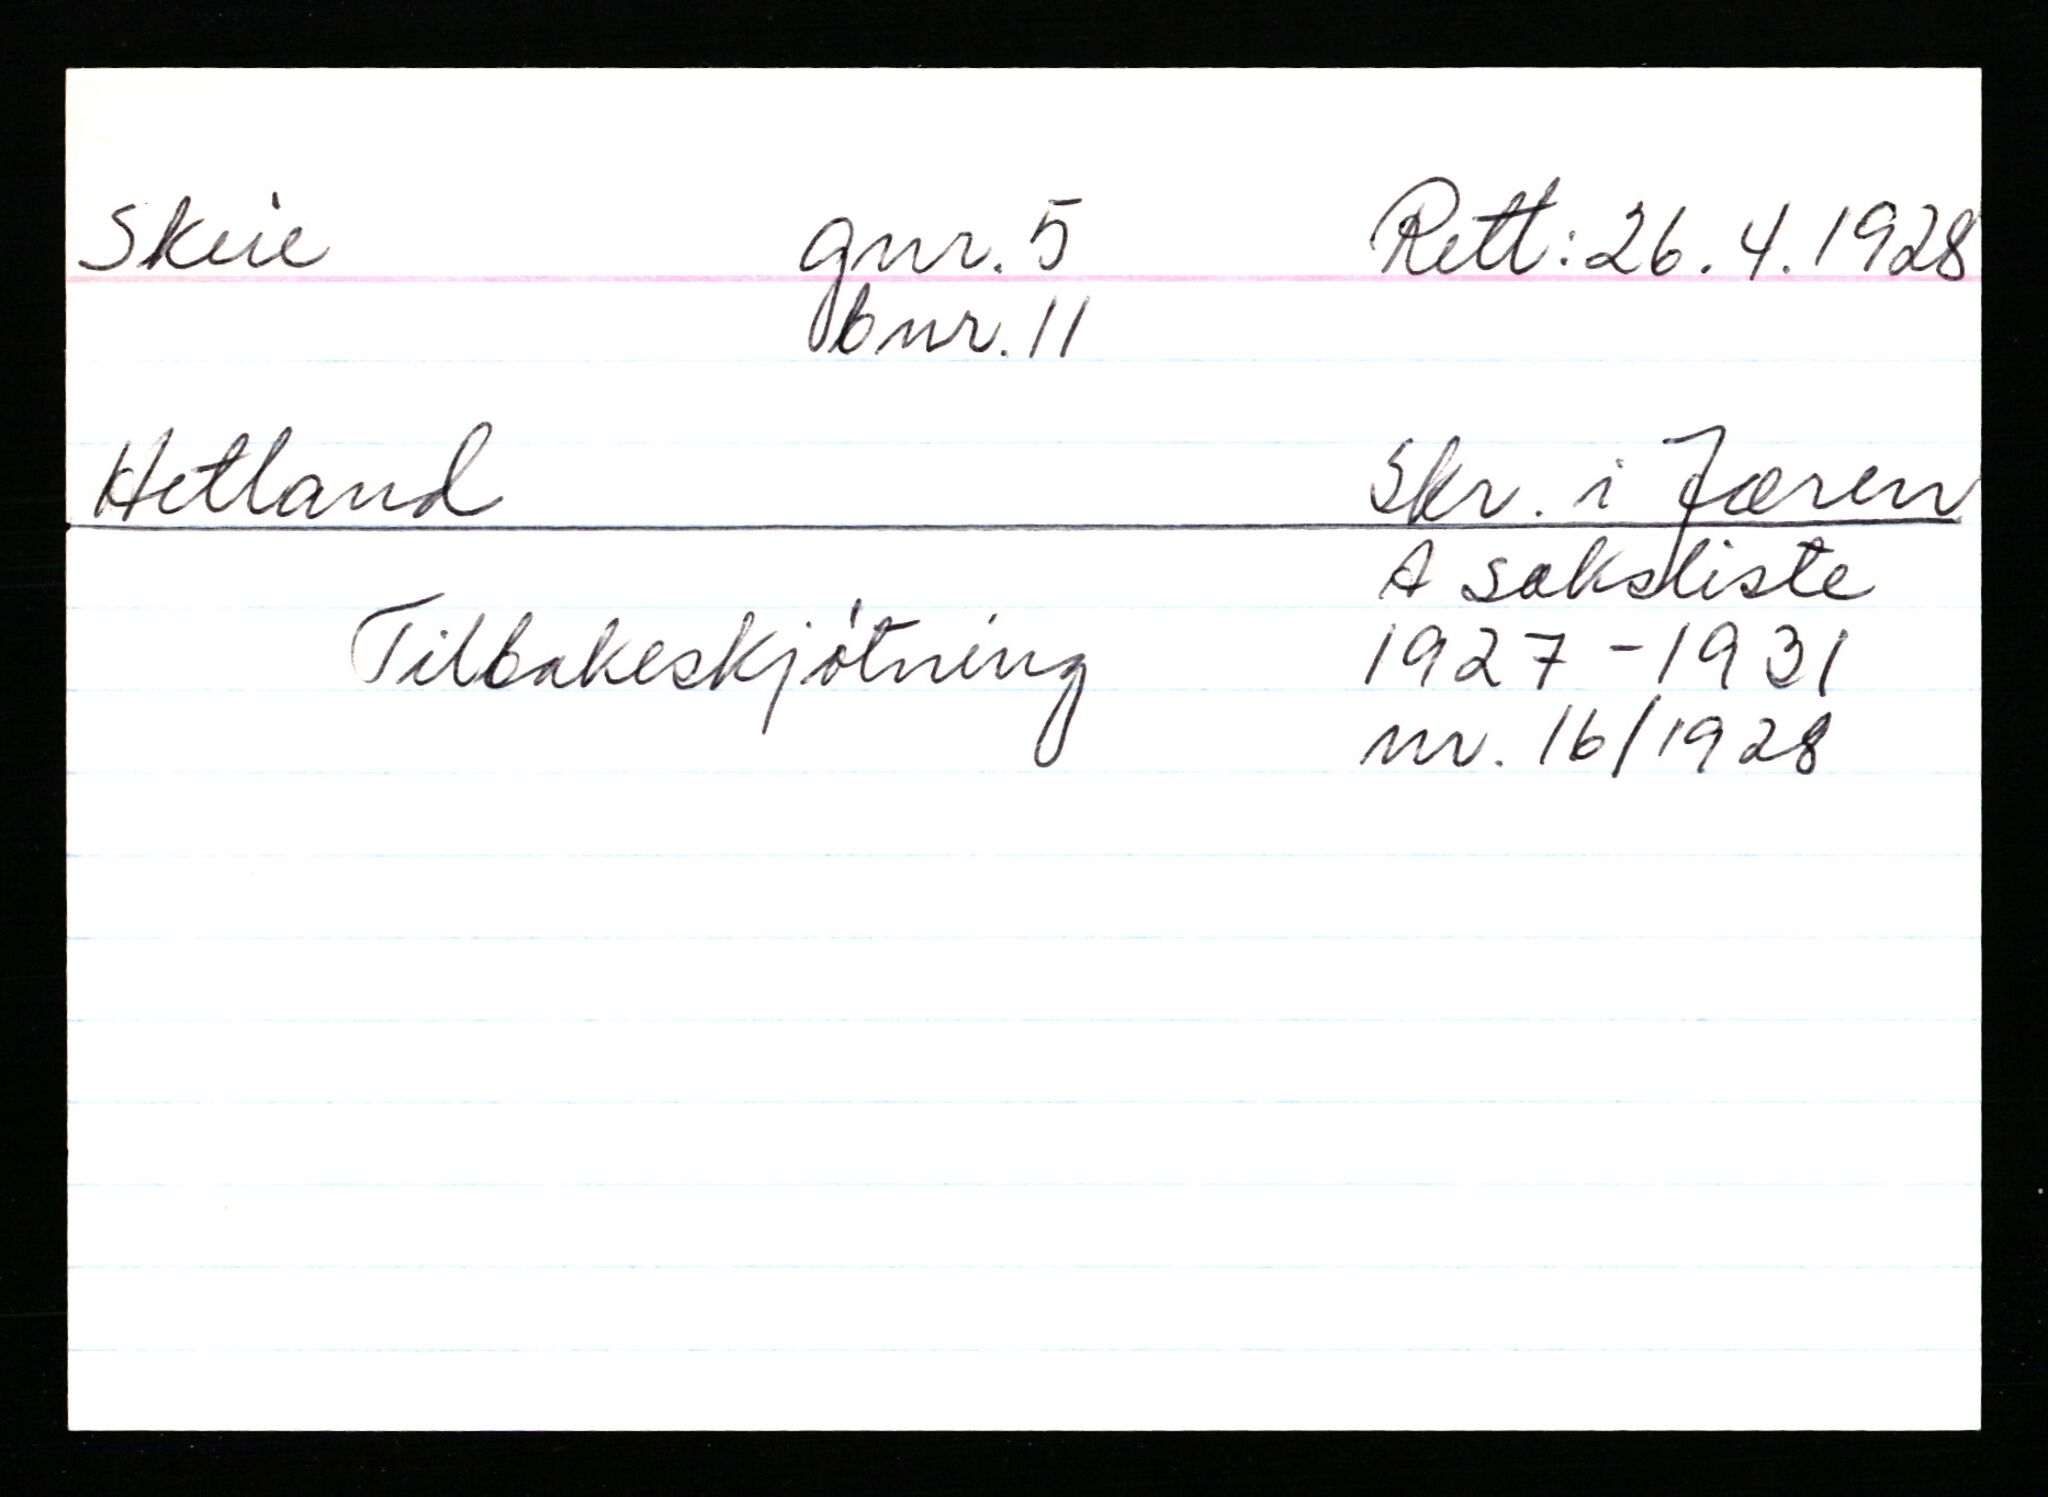 Skeie gnr. 5 Rett: 26.4.1928
bnr. 11
Hetland Skr. i Jæren
A saksliste
Tilbakeskjøtning 1927-1931
nr. 16/1928